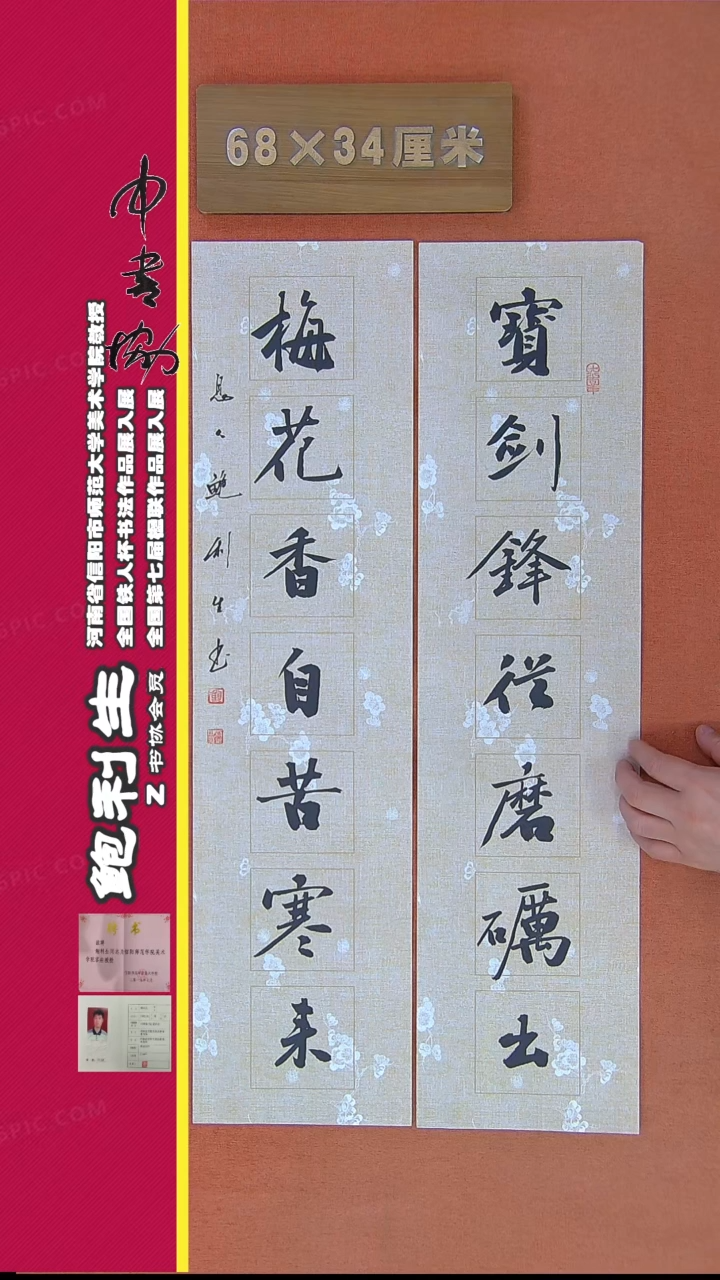 68×34厘米
寶剑鋒從磨礪出
梅花香自苦寒来
鲍利生书
中书协
河南省信阳市师范大学美术学院教授
全国铁人杯书法作品展入展
全国第七届楹联作品展入展
鲍利生
Z 书协会员